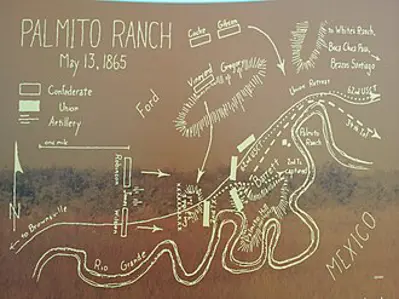 PALMITO RANCH
May 13, 1865
Confederate
Union
Artillery
one mile
Cocke
Gibson
Vineyard
Gregory
Ford
to White's Ranch,
Boca Chica Pass,
Brazos Santiago
Union Retreat
62nd USCT
34th Ind
Palmito
Ranch
2nd Tx
captured
Barrett
Robinson
Wilson
N
to Brownsville
Rio Grande
MEXICO